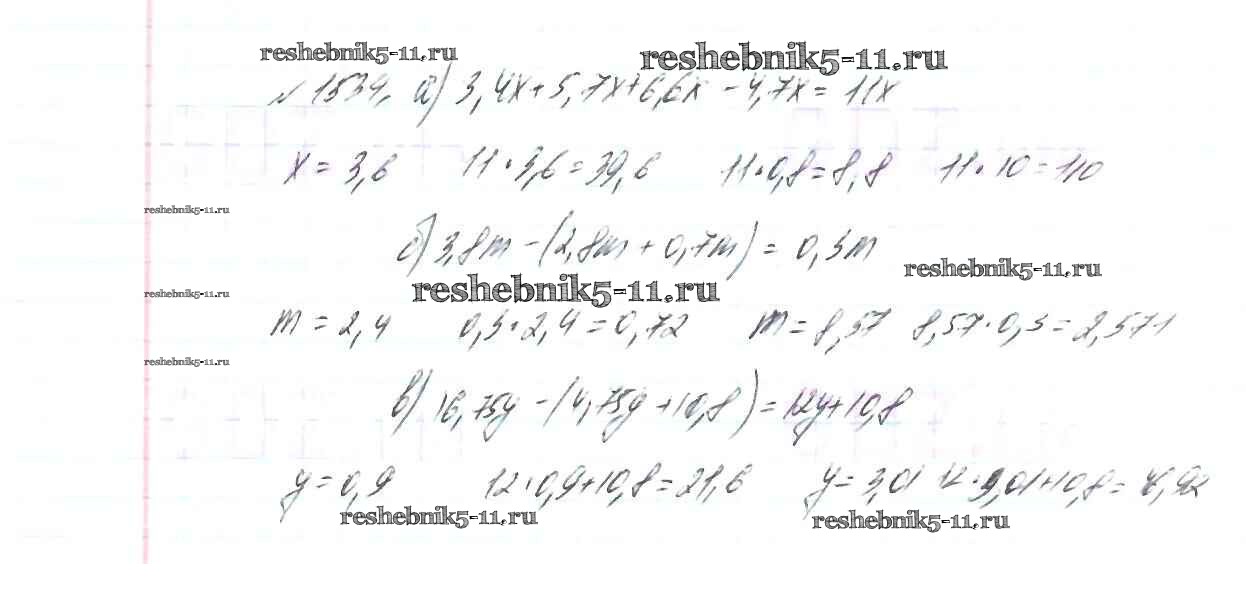 reshebnik5-11.ru reshebnik5-11.ru
№ 1534. а) 3,4x + 5,7x + 6,6x - 4,7x = 11x
x = 3,6 11 · 3,6 = 39,6 11 · 0,8 = 8,8 11 · 10 = 110
reshebnik5-11.ru
б) 3,8m - (2,8m + 0,7m) = 0,3m
reshebnik5-11.ru
reshebnik5-11.ru reshebnik5-11.ru
m = 2,4 0,3 · 2,4 = 0,72 m = 8,57 8,57 · 0,3 = 2,571
reshebnik5-11.ru
в) 16,75y - (4,75y + 10,8) = 12y + 10,8
y = 0,9 12 · 0,9 + 10,8 = 21,6 y = 3,01 12 · 3,01 + 10,8 =
reshebnik5-11.ru reshebnik5-11.ru